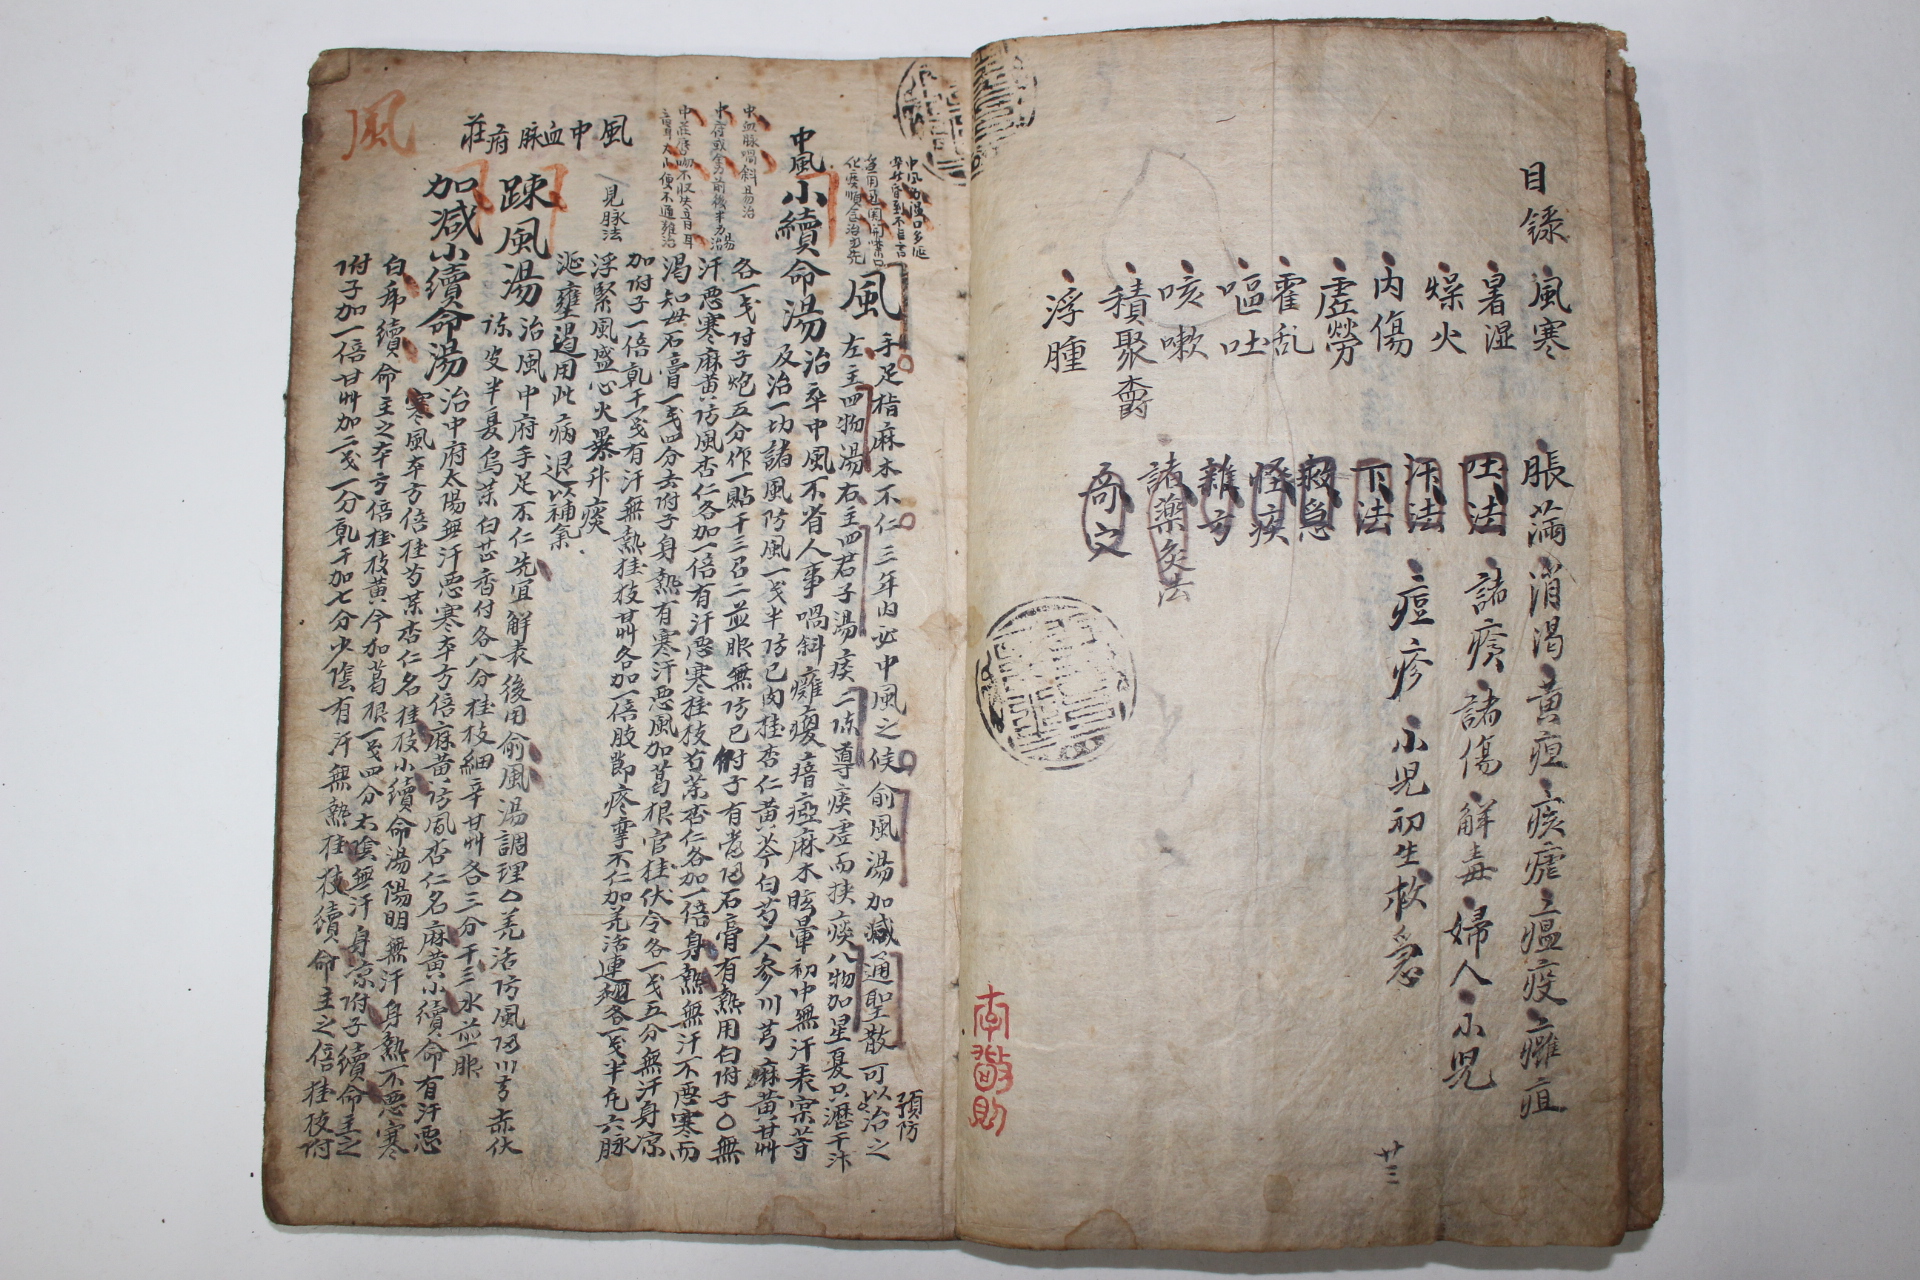 目錄
風寒
暑湿
燥火
內傷
虛勞
霍乱
嘔吐
咳嗽
積聚
浮腫
脹滿 消渴 黃疸 痰瘧 瘟疫 癰疽
吐法 諸瘡 諸傷 解毒 婦人 小兒
汗法 痘疹 小兒初生救急
下法
救急
怪疾
雜方
諸藥灸法
奇文
廿三
風
手足指麻木不仁三年內必中風之候俞風湯加減通聖散可以治之
預防
左主四物湯右主四君子湯痰二陳導痰虛而挾痰八物加星夏只瀝干汁
中風
小續命湯
治卒中風不省人事喎斜癱瘓瘖瘂麻木眩暈初中無汗表宲等
及治一切諸風防風一戔半防己肉桂杏仁黃芩白芍人參川芎麻黃甘艸
各一戔付子炮五分作一貼干三召二並服無防己附子有石膏有熱用白附子〇無
汗惡寒麻黃防風杏仁各加一倍有汗惡寒桂枝芍药杏仁各加一倍身熱無汗不惡寒而
渴知母石膏一戔四分去附子身熱有寒汗惡風加葛根官桂伏令各一戔五分無汗身凉
加附子一倍乹干一戔有汗無熱桂枝甘艸各加一倍肢節疼挛不仁加羌活連翹各一戔半凡六脉
浮緊風盛心火暴升痰
涎壅遏用此病退以補氣
中血脉喎斜易治
見脉法
風中血脉府莊
疎風湯
治風中府手足不仁先宜解表後用俞風湯調理
陈皮半夏烏药白芷香付各八分桂枝細辛甘艸各三分干三水並服
加减小續命湯
治中府太陽無汗惡寒本方倍麻黃防風杏仁名麻黃小續命有汗惡
寒風本方倍桂芍药杏仁名桂枝小續命湯陽明無汗身熱不惡寒
白弗續命主之本方倍桂枝黃今加葛根一戔四分太陰無汗身凉附子續命主之
附子加一倍甘艸加二戔一分乹干加七分少陰有汗無熱桂枝續命主之倍桂枝附
風